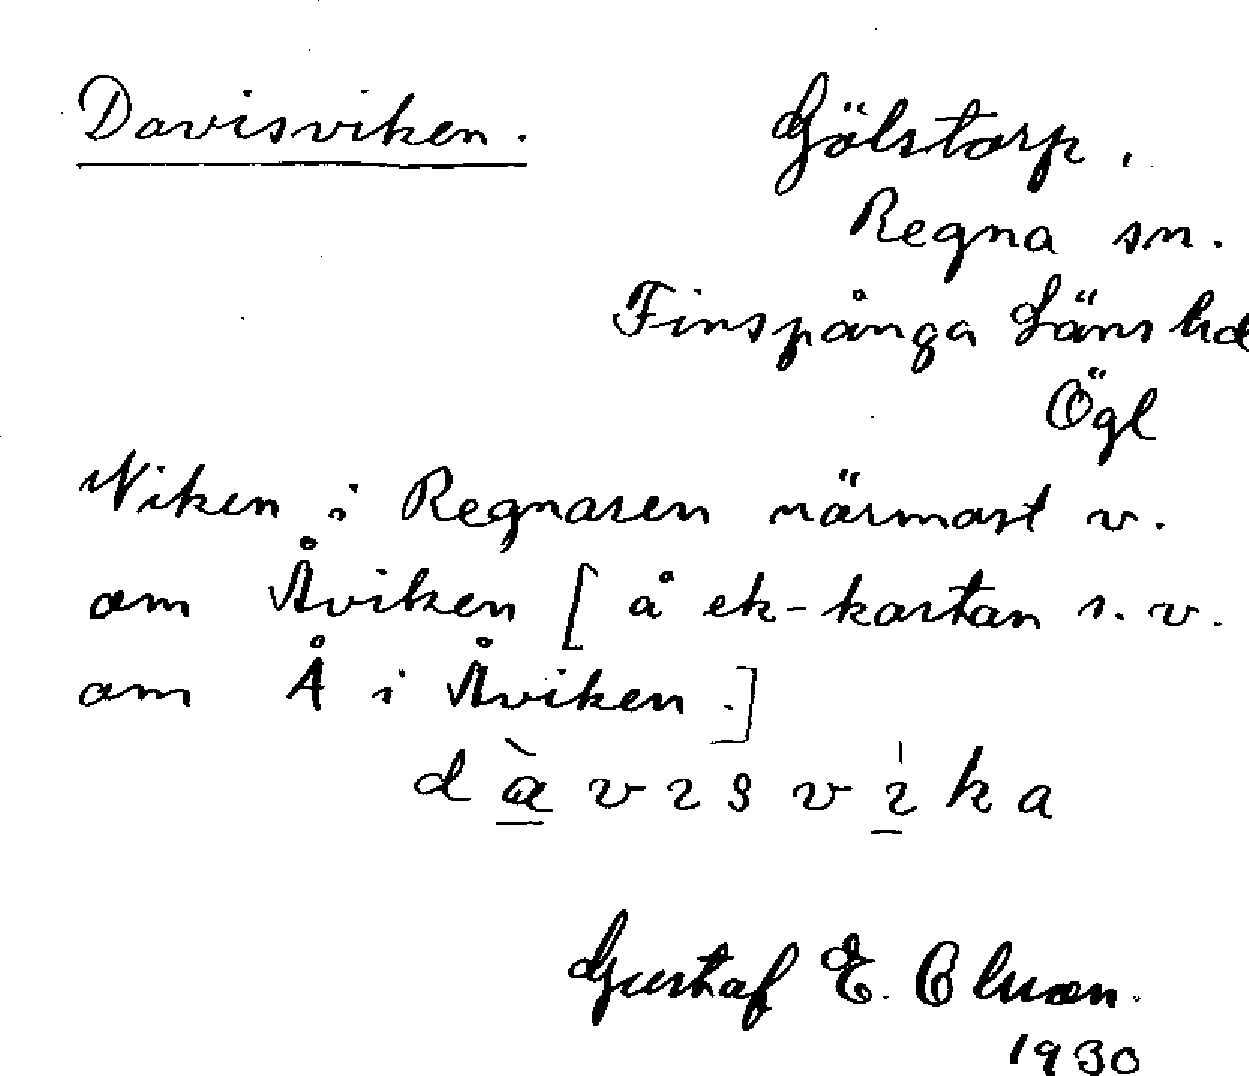 Davisviken.
Gölstorp.
Regna sn.
Finspånga Läns hd
Ögl
Viken i Regnaren närmast v.
om Åviken [å ek-kartan s.v.
om Å i Åviken.]
dàvɪsvɪka
Gustaf E. Olsson.
1930